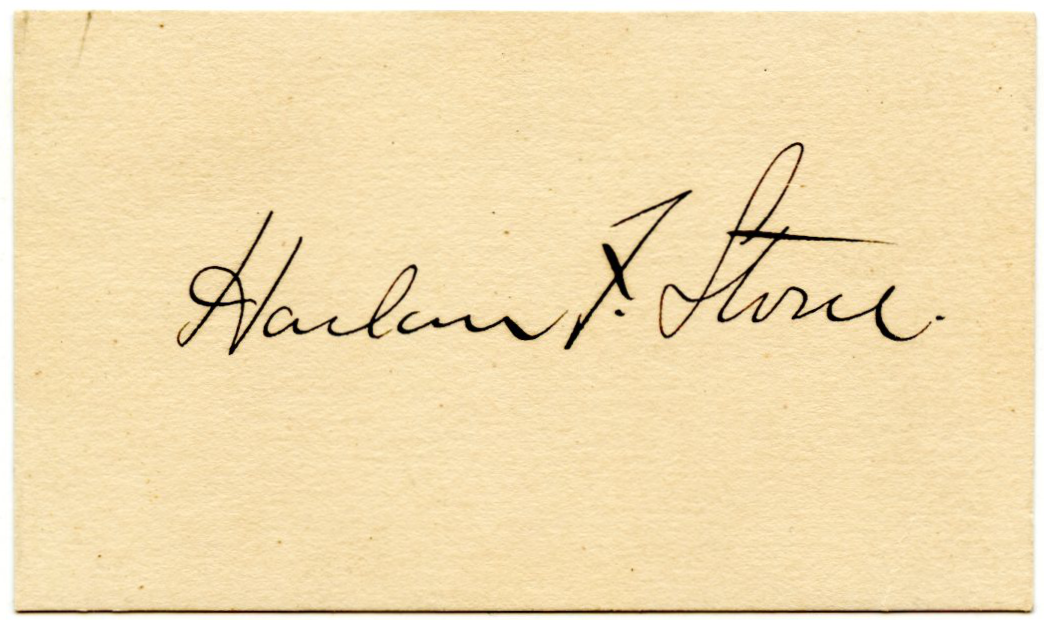 Harlan F. Stone.